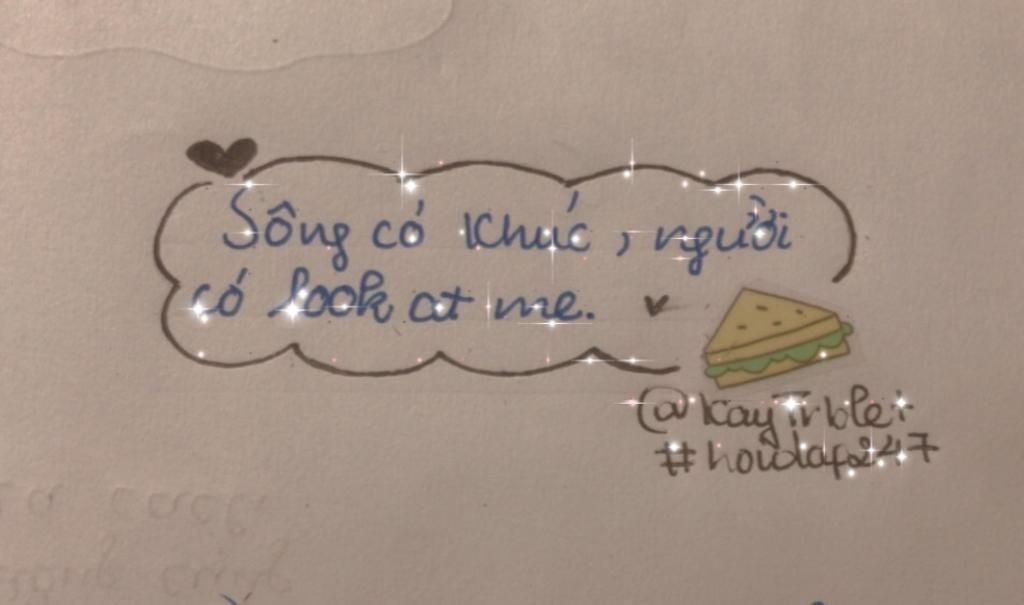 Sông có Khúc, người
có look at me.
@KayTrblet
#hoidap247